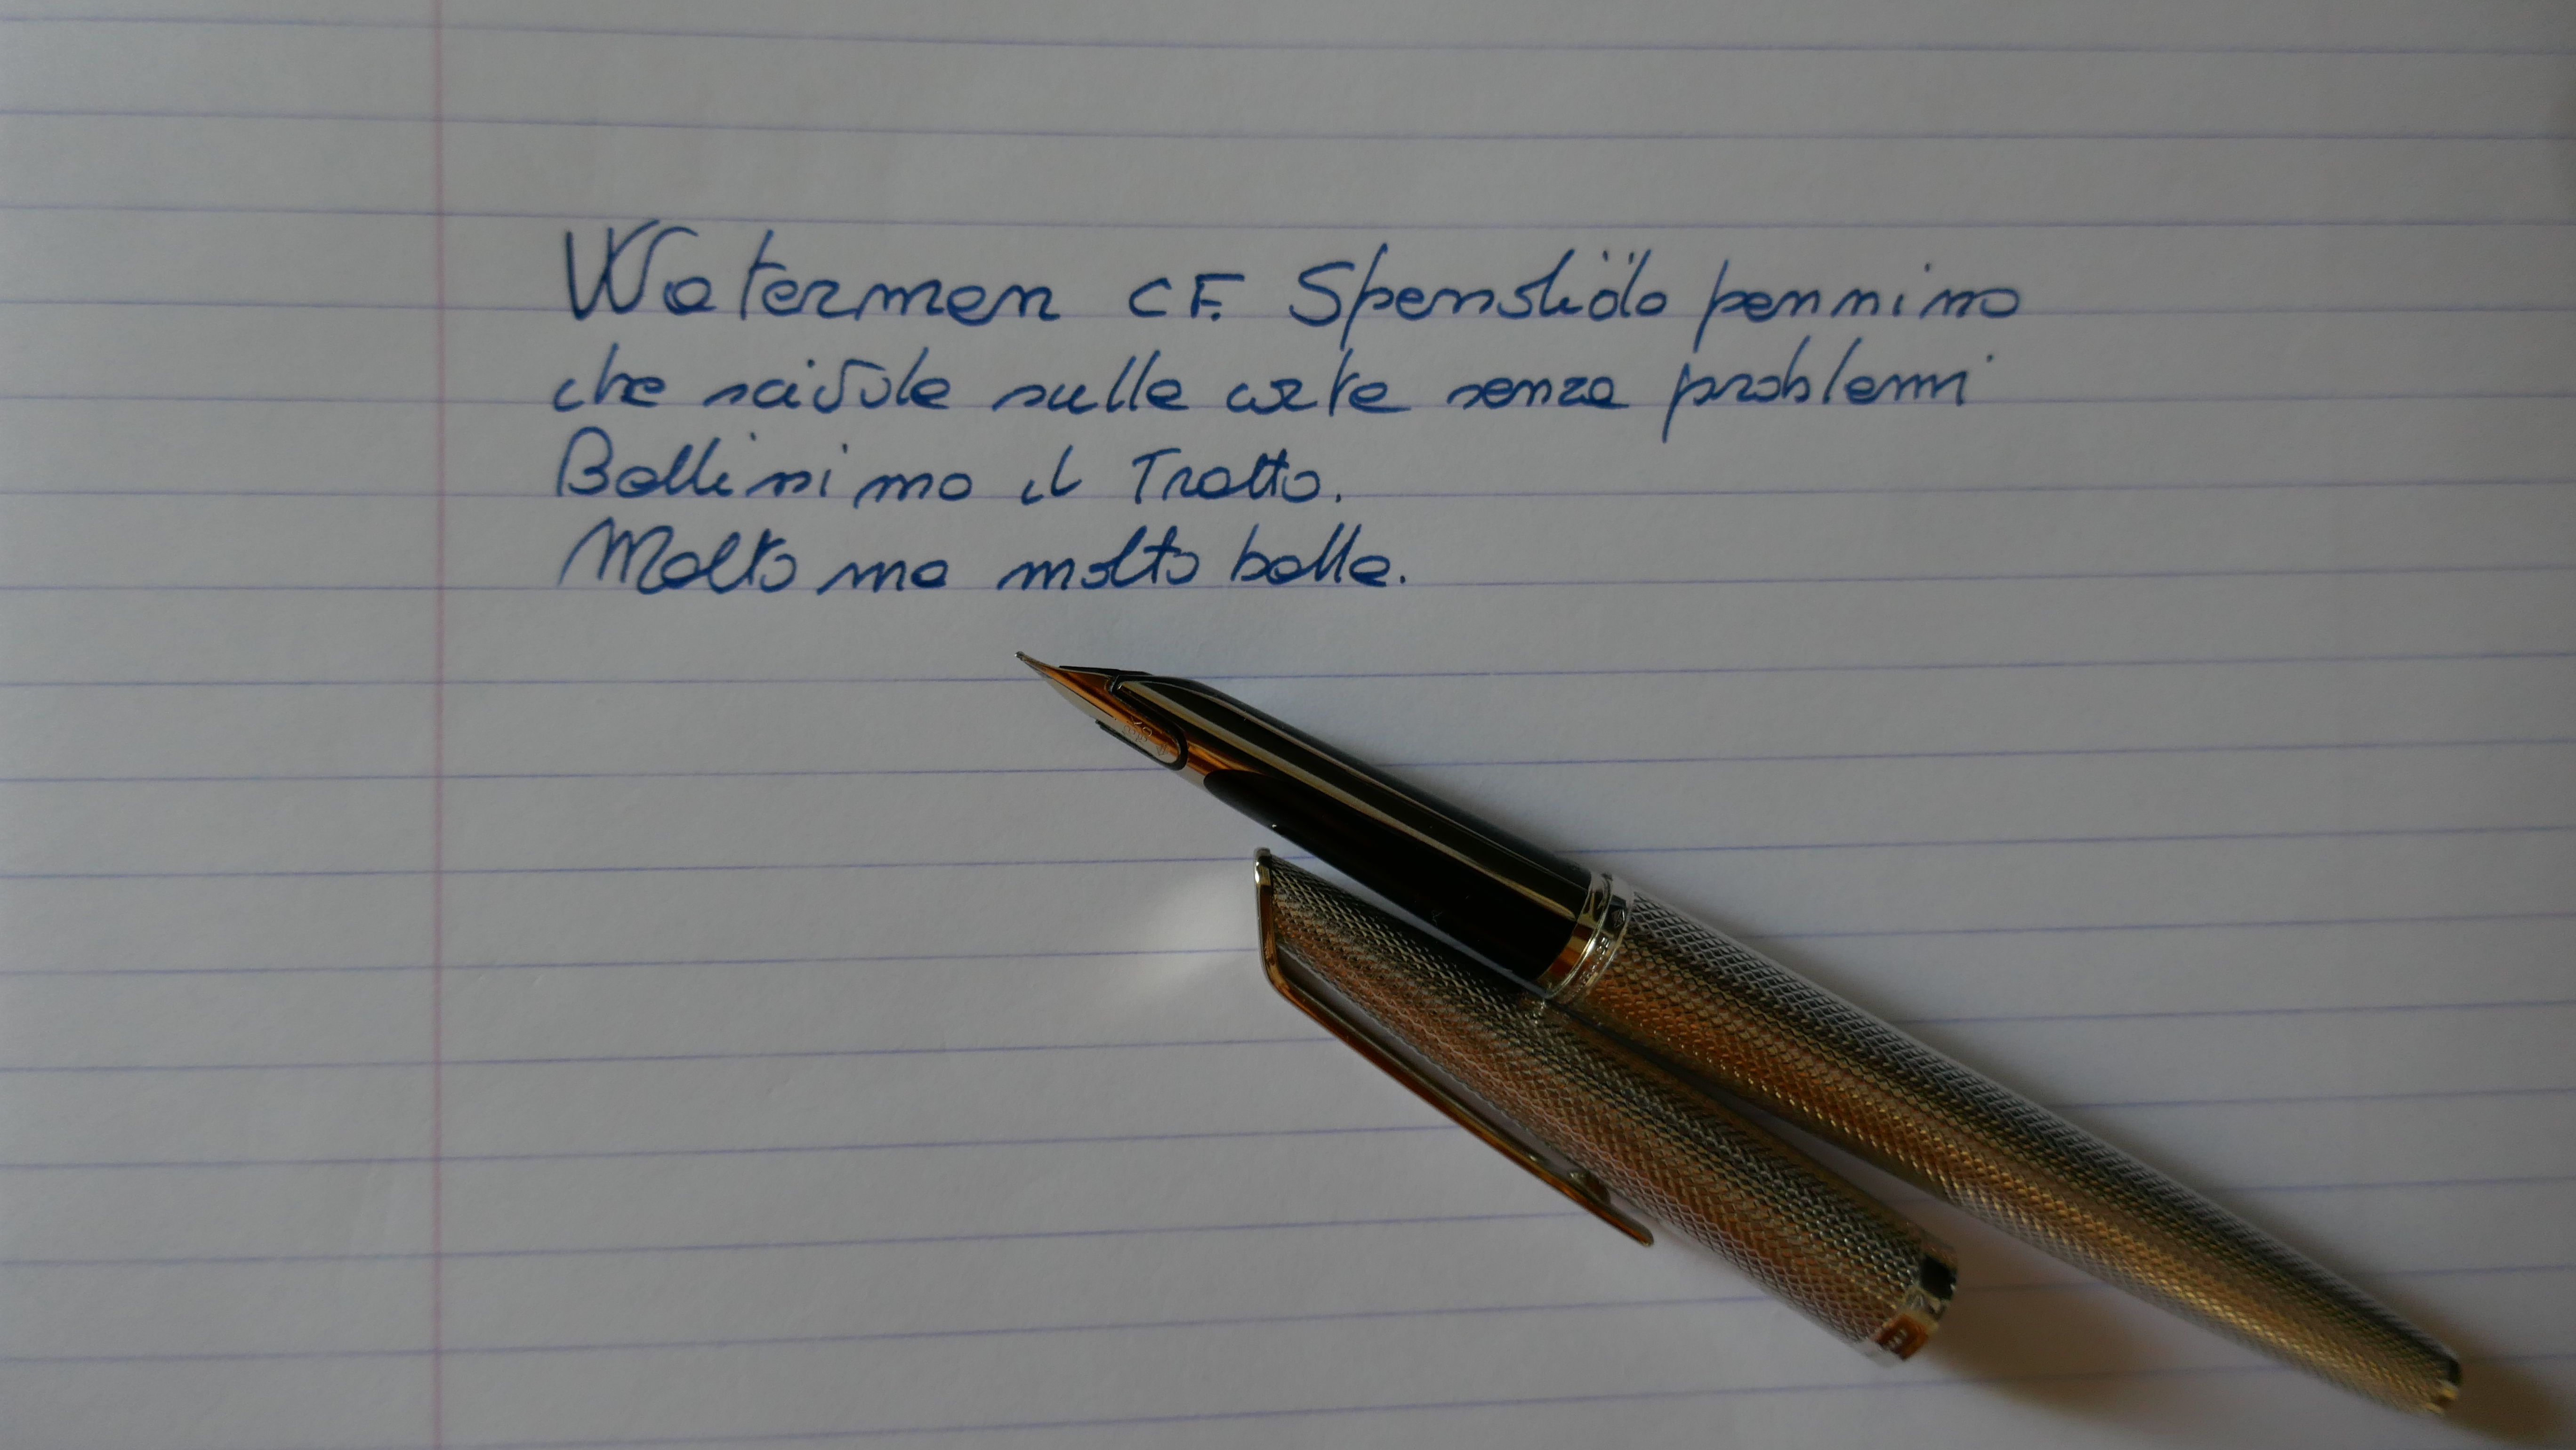 Waterman CF. Splendido pennino
che scivola sulla carta senza problemi
Bellissimo il Tratto.
Molto ma molto bella.